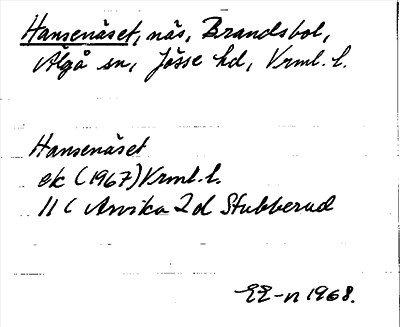 Hansenäset, näs, Brandsbol,
Älgå sn, Jösse hd, Vrml. l.
Hansenäset
ek (1967) Vrml. l.
11 C Arvika 2 d Stubberud
EE-n 1968.